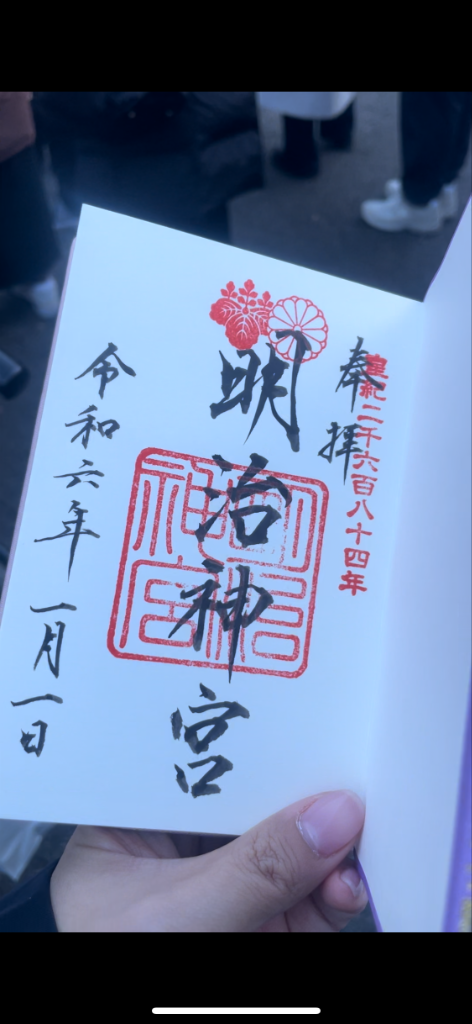 奉拝
皇紀二千六百八十四年
明治神宮
明治神宮
令和六年一月一日